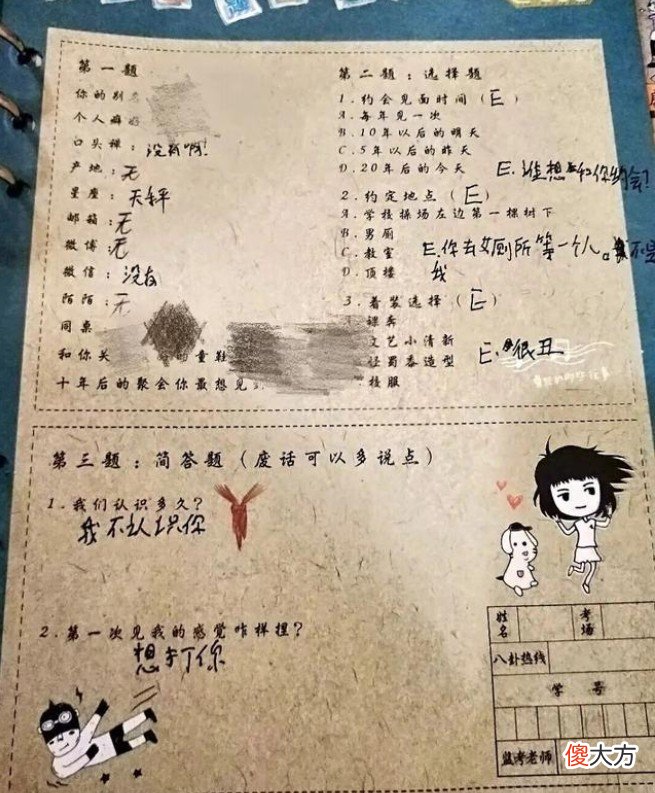 第一题
你的别
个人癖好
口头禅：没有啊!
产地：无
星座：天秤
邮箱：无
微博：无
微信：没有
陌陌：无
同桌
和你关 的童鞋
十年后的聚会你最想见
第二题：选择题
1.约会见面时间（E）
A.每年见一次
B.10年以后的明天
C.5年以后的昨天
D.20年后的今天
E.谁想和你约会?
2.约定地点（E）
A.学校操场左边第一棵树下
B.男厕
C.教室
D.顶楼
E.你去女厕所第一个人。 不是
我
3.着装选择（E）
裸奔
文艺小清新
怪蜀黍造型
校服
E.很丑
第三题：简答题（废话可以多说点）
1.我们认识多久?
我不认识你
2.第一次见我的感觉咋样捏?
想打你
姓名
考场
八卦热线
学号
监考老师
傻大方